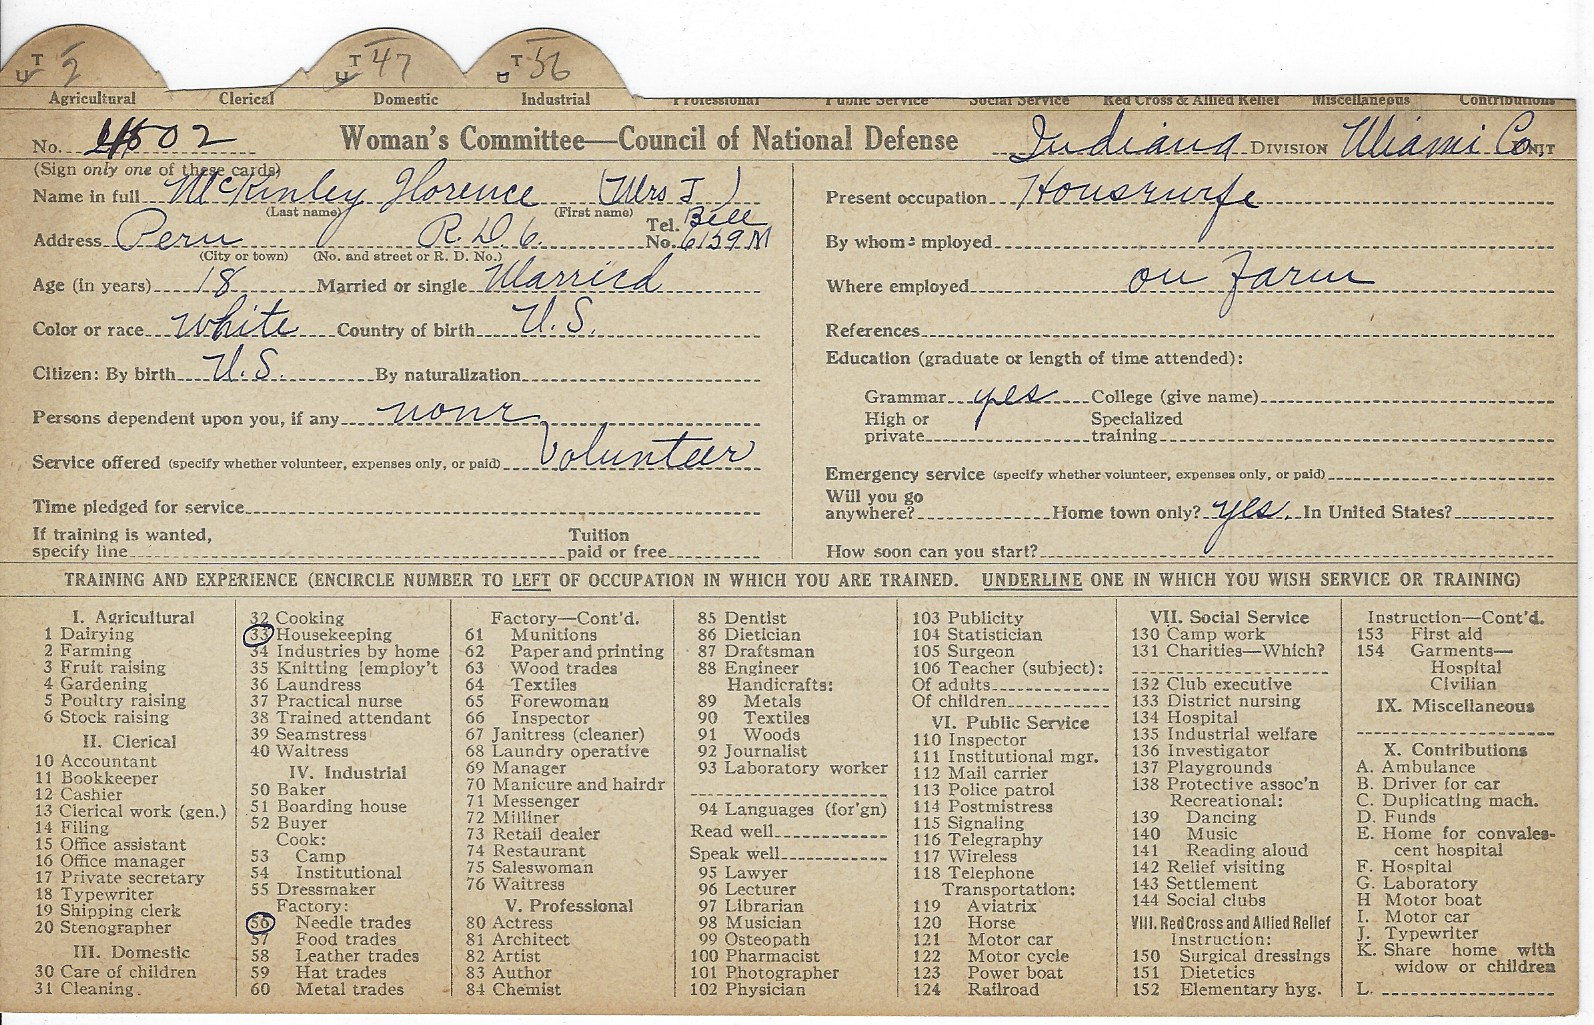 T U 2 T U 47 T U 56
Agricultural Clerical Domestic Industrial Professional Public Service Social Service Red Cross & Allied Relief Miscellaneous Contributions
No. 4502 Woman's Committee—Council of National Defense Indiana DIVISION Miami Co. UNIT
(Sign only one of these cards)
Name in full McKinley Florence (Mrs J )
(Last name) (First name)
Address Peru R. D 6. Tel. No. Bell 6159 M
(City or town) (No. and street or R. D. No.)
Age (in years) 18 Married or single Married
Color or race White Country of birth U. S.
Citizen: By birth U. S. By naturalization
Persons dependent upon you, if any none
Service offered (specify whether volunteer, expenses only, or paid) Volunteer
Time pledged for service
If training is wanted, specify line Tuition paid or free
Present occupation Housewife
By whom mployed
Where employed on Farm
References
Education (graduate or length of time attended):
Grammar yes College (give name)
High or private Specialized training
Emergency service (specify whether volunteer, expenses only, or paid)
Will you go anywhere? Home town only? yes. In United States?
How soon can you start?
TRAINING AND EXPERIENCE (ENCIRCLE NUMBER TO LEFT OF OCCUPATION IN WHICH YOU ARE TRAINED. UNDERLINE ONE IN WHICH YOU WISH SERVICE OR TRAINING)
I. Agricultural
1 Dairying
2 Farming
3 Fruit raising
4 Gardening
5 Poultry raising
6 Stock raising
II. Clerical
10 Accountant
11 Bookkeeper
12 Cashier
13 Clerical work (gen.)
14 Filing
15 Office assistant
16 Office manager
17 Private secretary
18 Typewriter
19 Shipping clerk
20 Stenographer
III. Domestic
30 Care of children
31 Cleaning.
32 Cooking
33 Housekeeping
34 Industries by home
35 Knitting [employ't
36 Laundress
37 Practical nurse
38 Trained attendant
39 Seamstress
40 Waitress
IV. Industrial
50 Baker
51 Boarding house
52 Buyer
Cook:
53 Camp
54 Institutional
55 Dressmaker
Factory:
56 Needle trades
57 Food trades
58 Leather trades
59 Hat trades
60 Metal trades
Factory—Cont'd.
61 Munitions
62 Paper and printing
63 Wood trades
64 Textiles
65 Forewoman
66 Inspector
67 Janitress (cleaner)
68 Laundry operative
69 Manager
70 Manicure and hairdr
71 Messenger
72 Milliner
73 Retail dealer
74 Restaurant
75 Saleswoman
76 Waitress
V. Professional
80 Actress
81 Architect
82 Artist
83 Author
84 Chemist
85 Dentist
86 Dietician
87 Draftsman
88 Engineer
Handicrafts:
89 Metals
90 Textiles
91 Woods
92 Journalist
93 Laboratory worker
94 Languages (for'gn)
Read well
Speak well
95 Lawyer
96 Lecturer
97 Librarian
98 Musician
99 Osteopath
100 Pharmacist
101 Photographer
102 Physician
103 Publicity
104 Statistician
105 Surgeon
106 Teacher (subject):
Of adults
Of children
VI. Public Service
110 Inspector
111 Institutional mgr.
112 Mail carrier
113 Police patrol
114 Postmistress
115 Signaling
116 Telegraphy
117 Wireless
118 Telephone
Transportation:
119 Aviatrix
120 Horse
121 Motor car
122 Motor cycle
123 Power boat
124 Railroad
VII. Social Service
130 Camp work
131 Charities—Which?
132 Club executive
133 District nursing
134 Hospital
135 Industrial welfare
136 Investigator
137 Playgrounds
138 Protective assoc'n
Recreational:
139 Dancing
140 Music
141 Reading aloud
142 Relief visiting
143 Settlement
144 Social clubs
VIII. Red Cross and Allied Relief
Instruction:
150 Surgical dressings
151 Dietetics
152 Elementary hyg.
Instruction—Cont'd.
153 First aid
154 Garments—
Hospital
Civilian
IX. Miscellaneous
X. Contributions
A. Ambulance
B. Driver for car
C. Duplicating mach.
D. Funds
E. Home for convales-
cent hospital
F. Hospital
G. Laboratory
H Motor boat
I. Motor car
J. Typewriter
K. Share home with
widow or children
L.